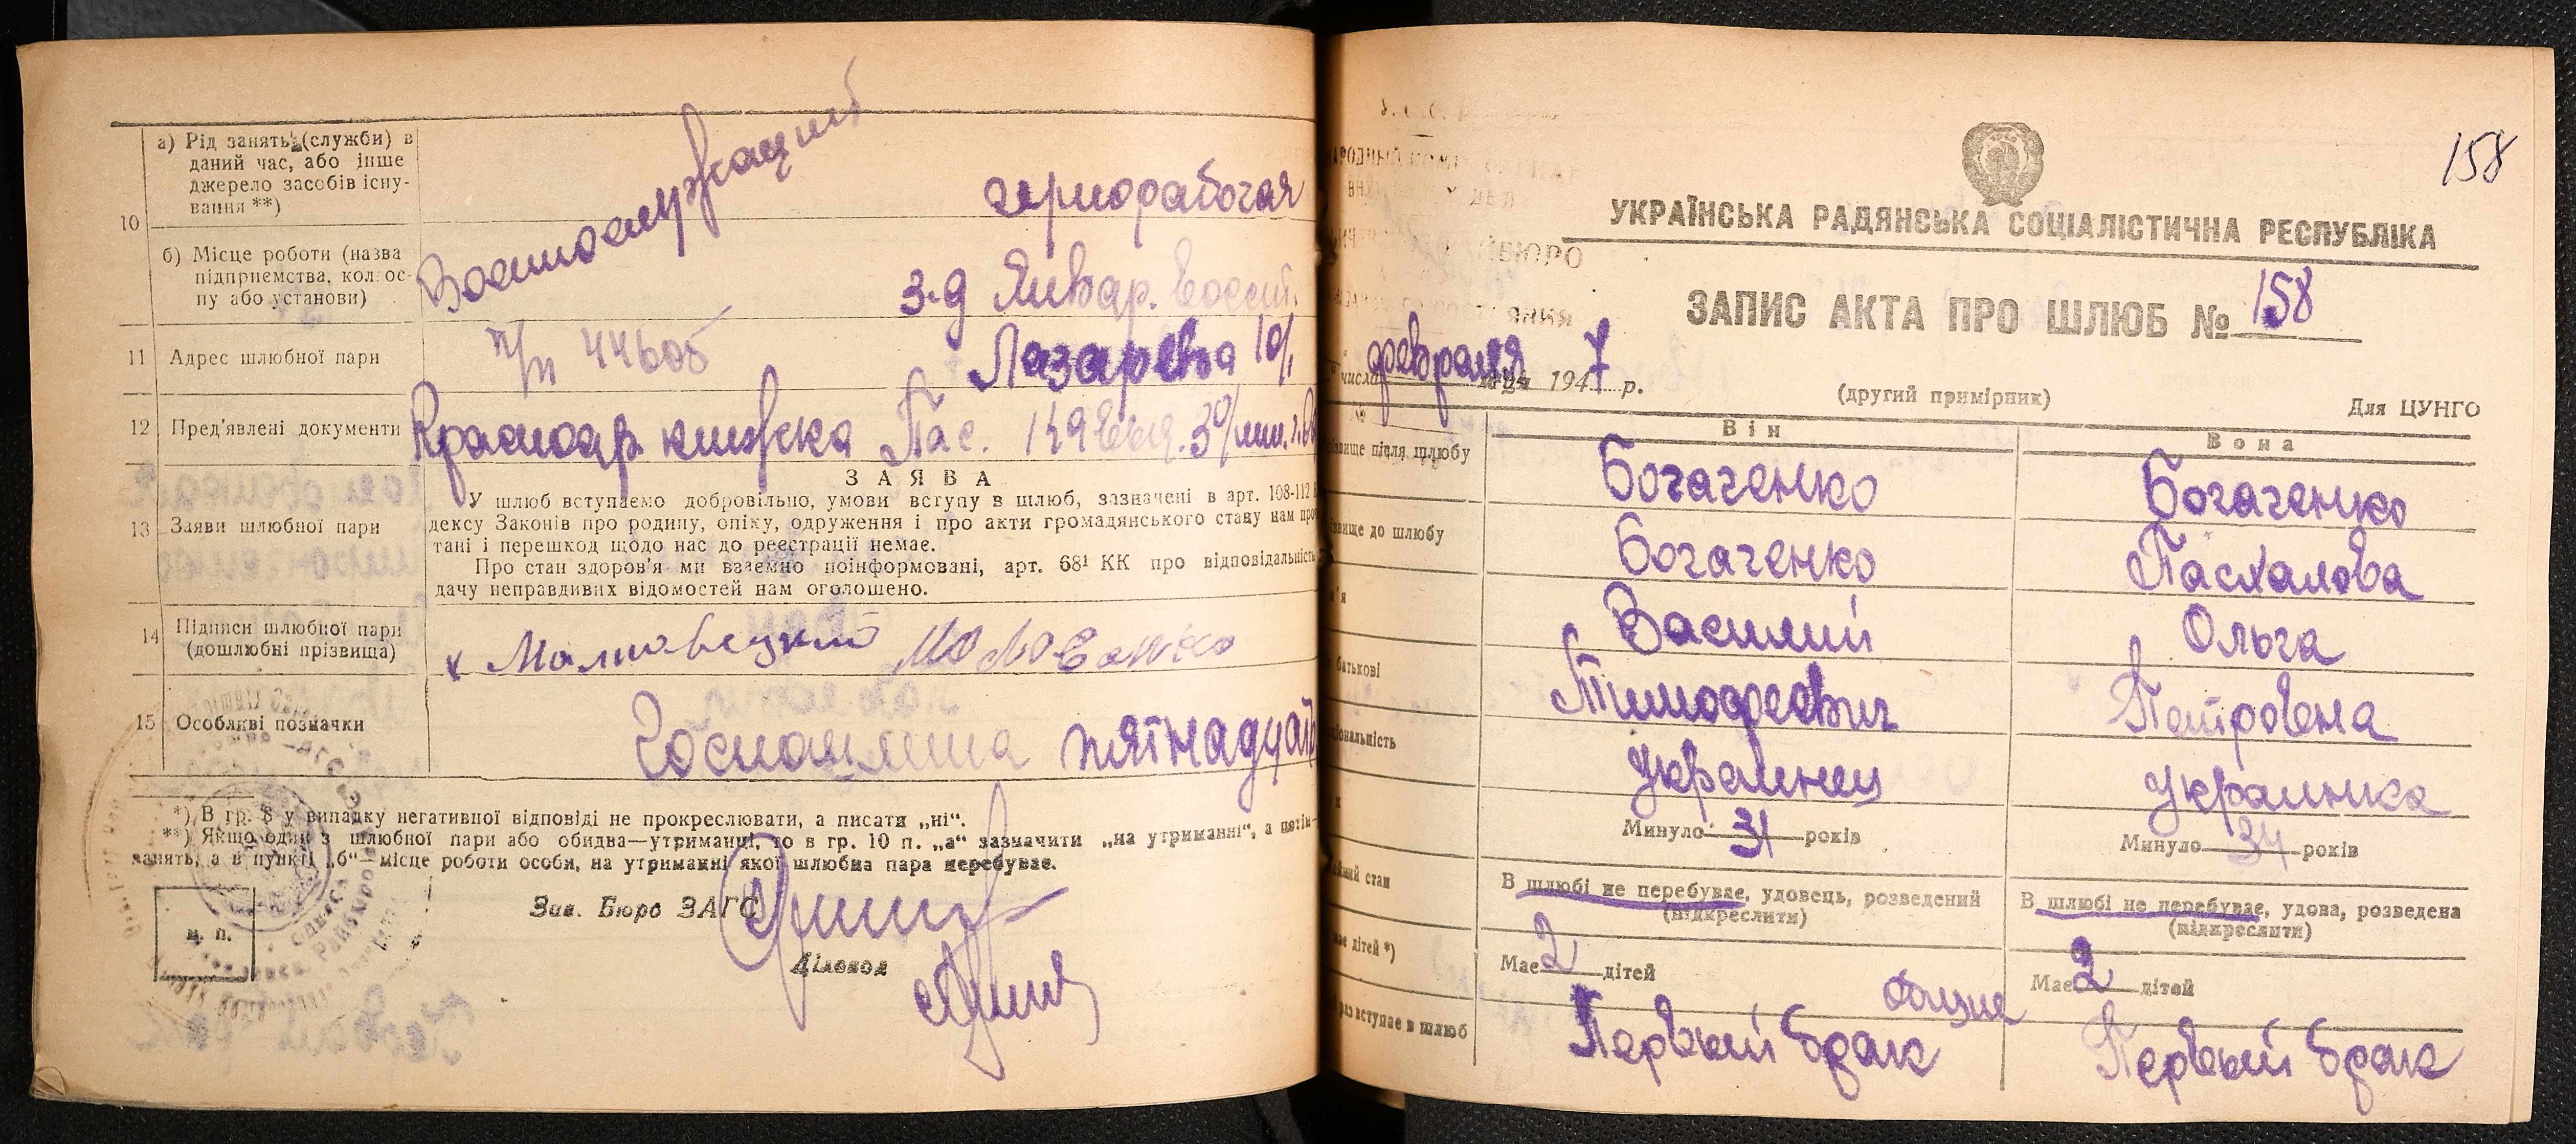 10
а) Рід занять (служби) в
даний час, або інше
джерело засобів існу-
вання **)
Военнослужащий
чернорабочая
б) Місце роботи (назва
підприємства, колгос-
пу або установи)
з-д Январ. Восст.
11 Адрес шлюбної пари
п/п 44605
Лазарева 10/
12 Пред'явлені документи
Красноар. книжка Пас.
13 Заяви шлюбної пари
ЗАЯВА
У шлюб вступаємо добровільно, умови вступу в шлюб, зазначені в арт. 108-112
дексу Законів про родину, опіку, одруження і про акти громадянського стану нам про
тані і перешкод щодо нас до реєстрації немає.
Про стан здоров'я ми взаємно поінформовані, арт. 68¹ КК про відповідальність
дачу неправдивих відомостей нам оголошено.
14 Підписи шлюбної пари
(дошлюбні прізвища)
15 Особливі позначки
Госпошлина пятнадцат
*) В гр. 8 у випадку негативної відповіді не прокреслювати, а писати „ні".
**) Якщо один з шлюбної пари або обидва—утриманці, то в гр. 10 п. „а" зазначити „на утриманні", а потім
занять, а в пункті „б"—місце роботи особи, на утриманні якої шлюбна пара перебуває.
м. п.
Зав. Бюро ЗАГС
Діловод
158
УКРАЇНСЬКА РАДЯНСЬКА СОЦІАЛІСТИЧНА РЕСПУБЛІКА
ЗАПИС АКТА ПРО ШЛЮБ № 158
числа февраля м-ця 1947 р.
(другий примірник)
Для ЦУНГО
Він
Вона
вище після шлюбу
Богаченко
Богаченко
вище до шлюбу
Богаченко
Пасхалова
м'я
Василий
Ольга
батькові
Тимофеевич
Петровна
ціональність
Украинец
Украинка
к
Минуло 31 років
Минуло 34 років
стан
В шлюбі не перебуває, удовець, розведений
(підкреслити)
В шлюбі не перебуває, удова, розведена
(підкреслити)
має дітей *)
Має 2 дітей
общие
Має 2 дітей
раз вступає в шлюб
Первый брак
Первый брак